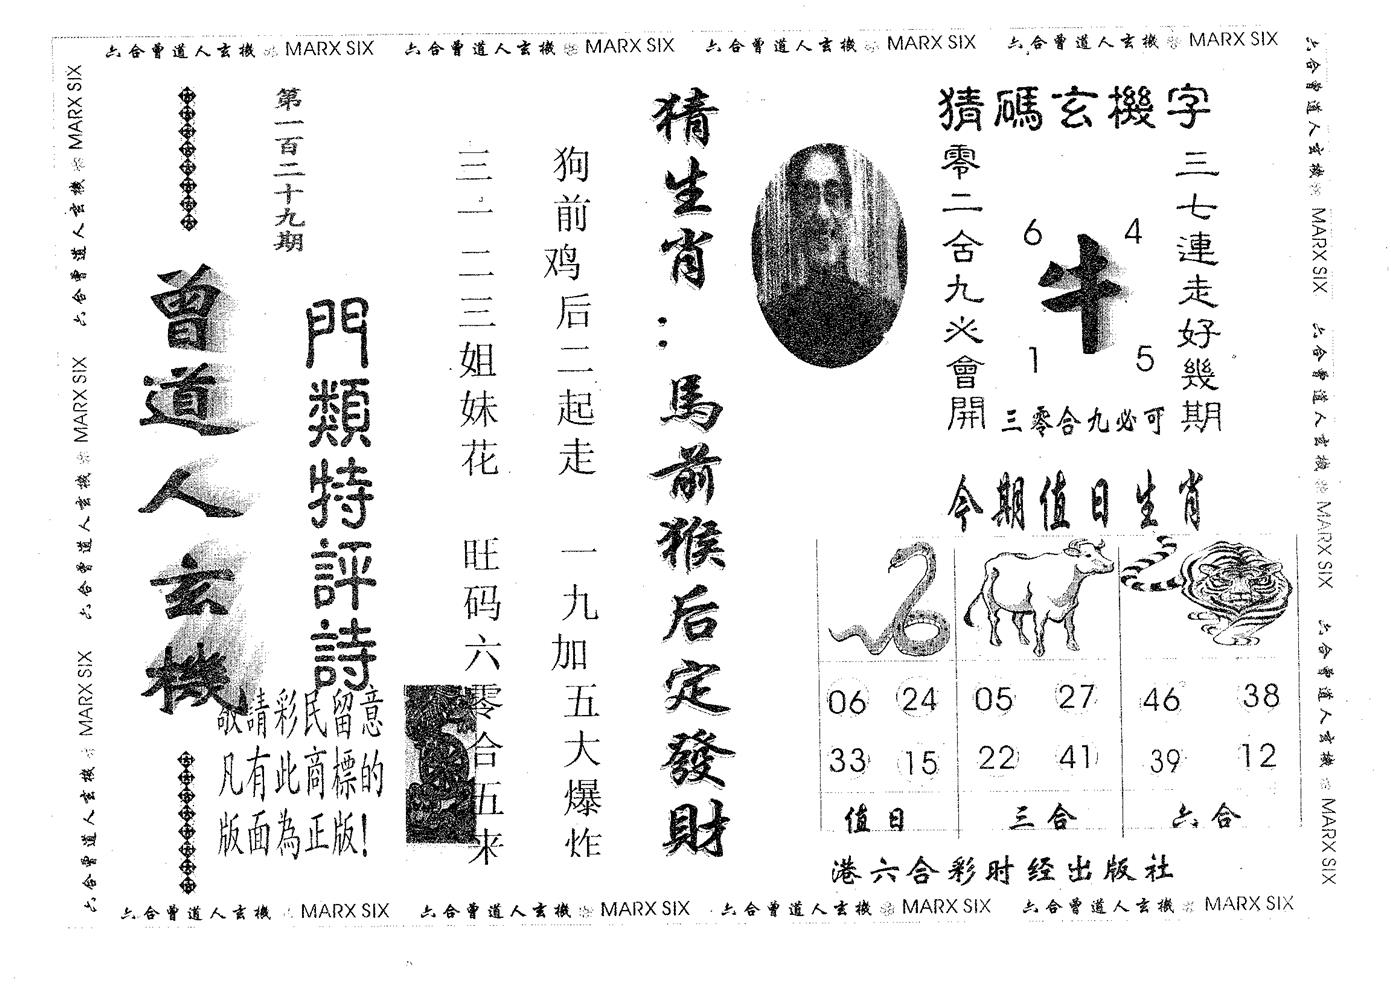 六合曾道人玄機 MARX SIX 六合曾道人玄機 MARX SIX 六合曾道人玄機 MARX SIX 六合曾道人玄機 MARX SIX
六合曾道人玄機 MARX SIX 六合曾道人玄機 MARX SIX 六合曾道人玄機 MARX SIX
第一百二十九期
曾道人玄機
門類特評詩
敬請彩民留意
凡有此商標的
版面為正版!
狗前鸡后二起走 一九加五大爆炸
三一二三姐妹花 旺码六零合五来
猜生肖:馬前猴后定發財
猜碼玄機字
三七連走好幾期
零二合九必會開
6 4
牛
1 5
三零合九必可
今期值日生肖
06 24 05 27 46 38
33 15 22 41 39 12
值日 三合 六合
港六合彩时经出版社
六合曾道人玄機 MARX SIX 六合曾道人玄機 MARX SIX 六合曾道人玄機 MARX SIX
六合曾道人玄機 MARX SIX 六合曾道人玄機 MARX SIX 六合曾道人玄機 MARX SIX 六合曾道人玄機 MARX SIX